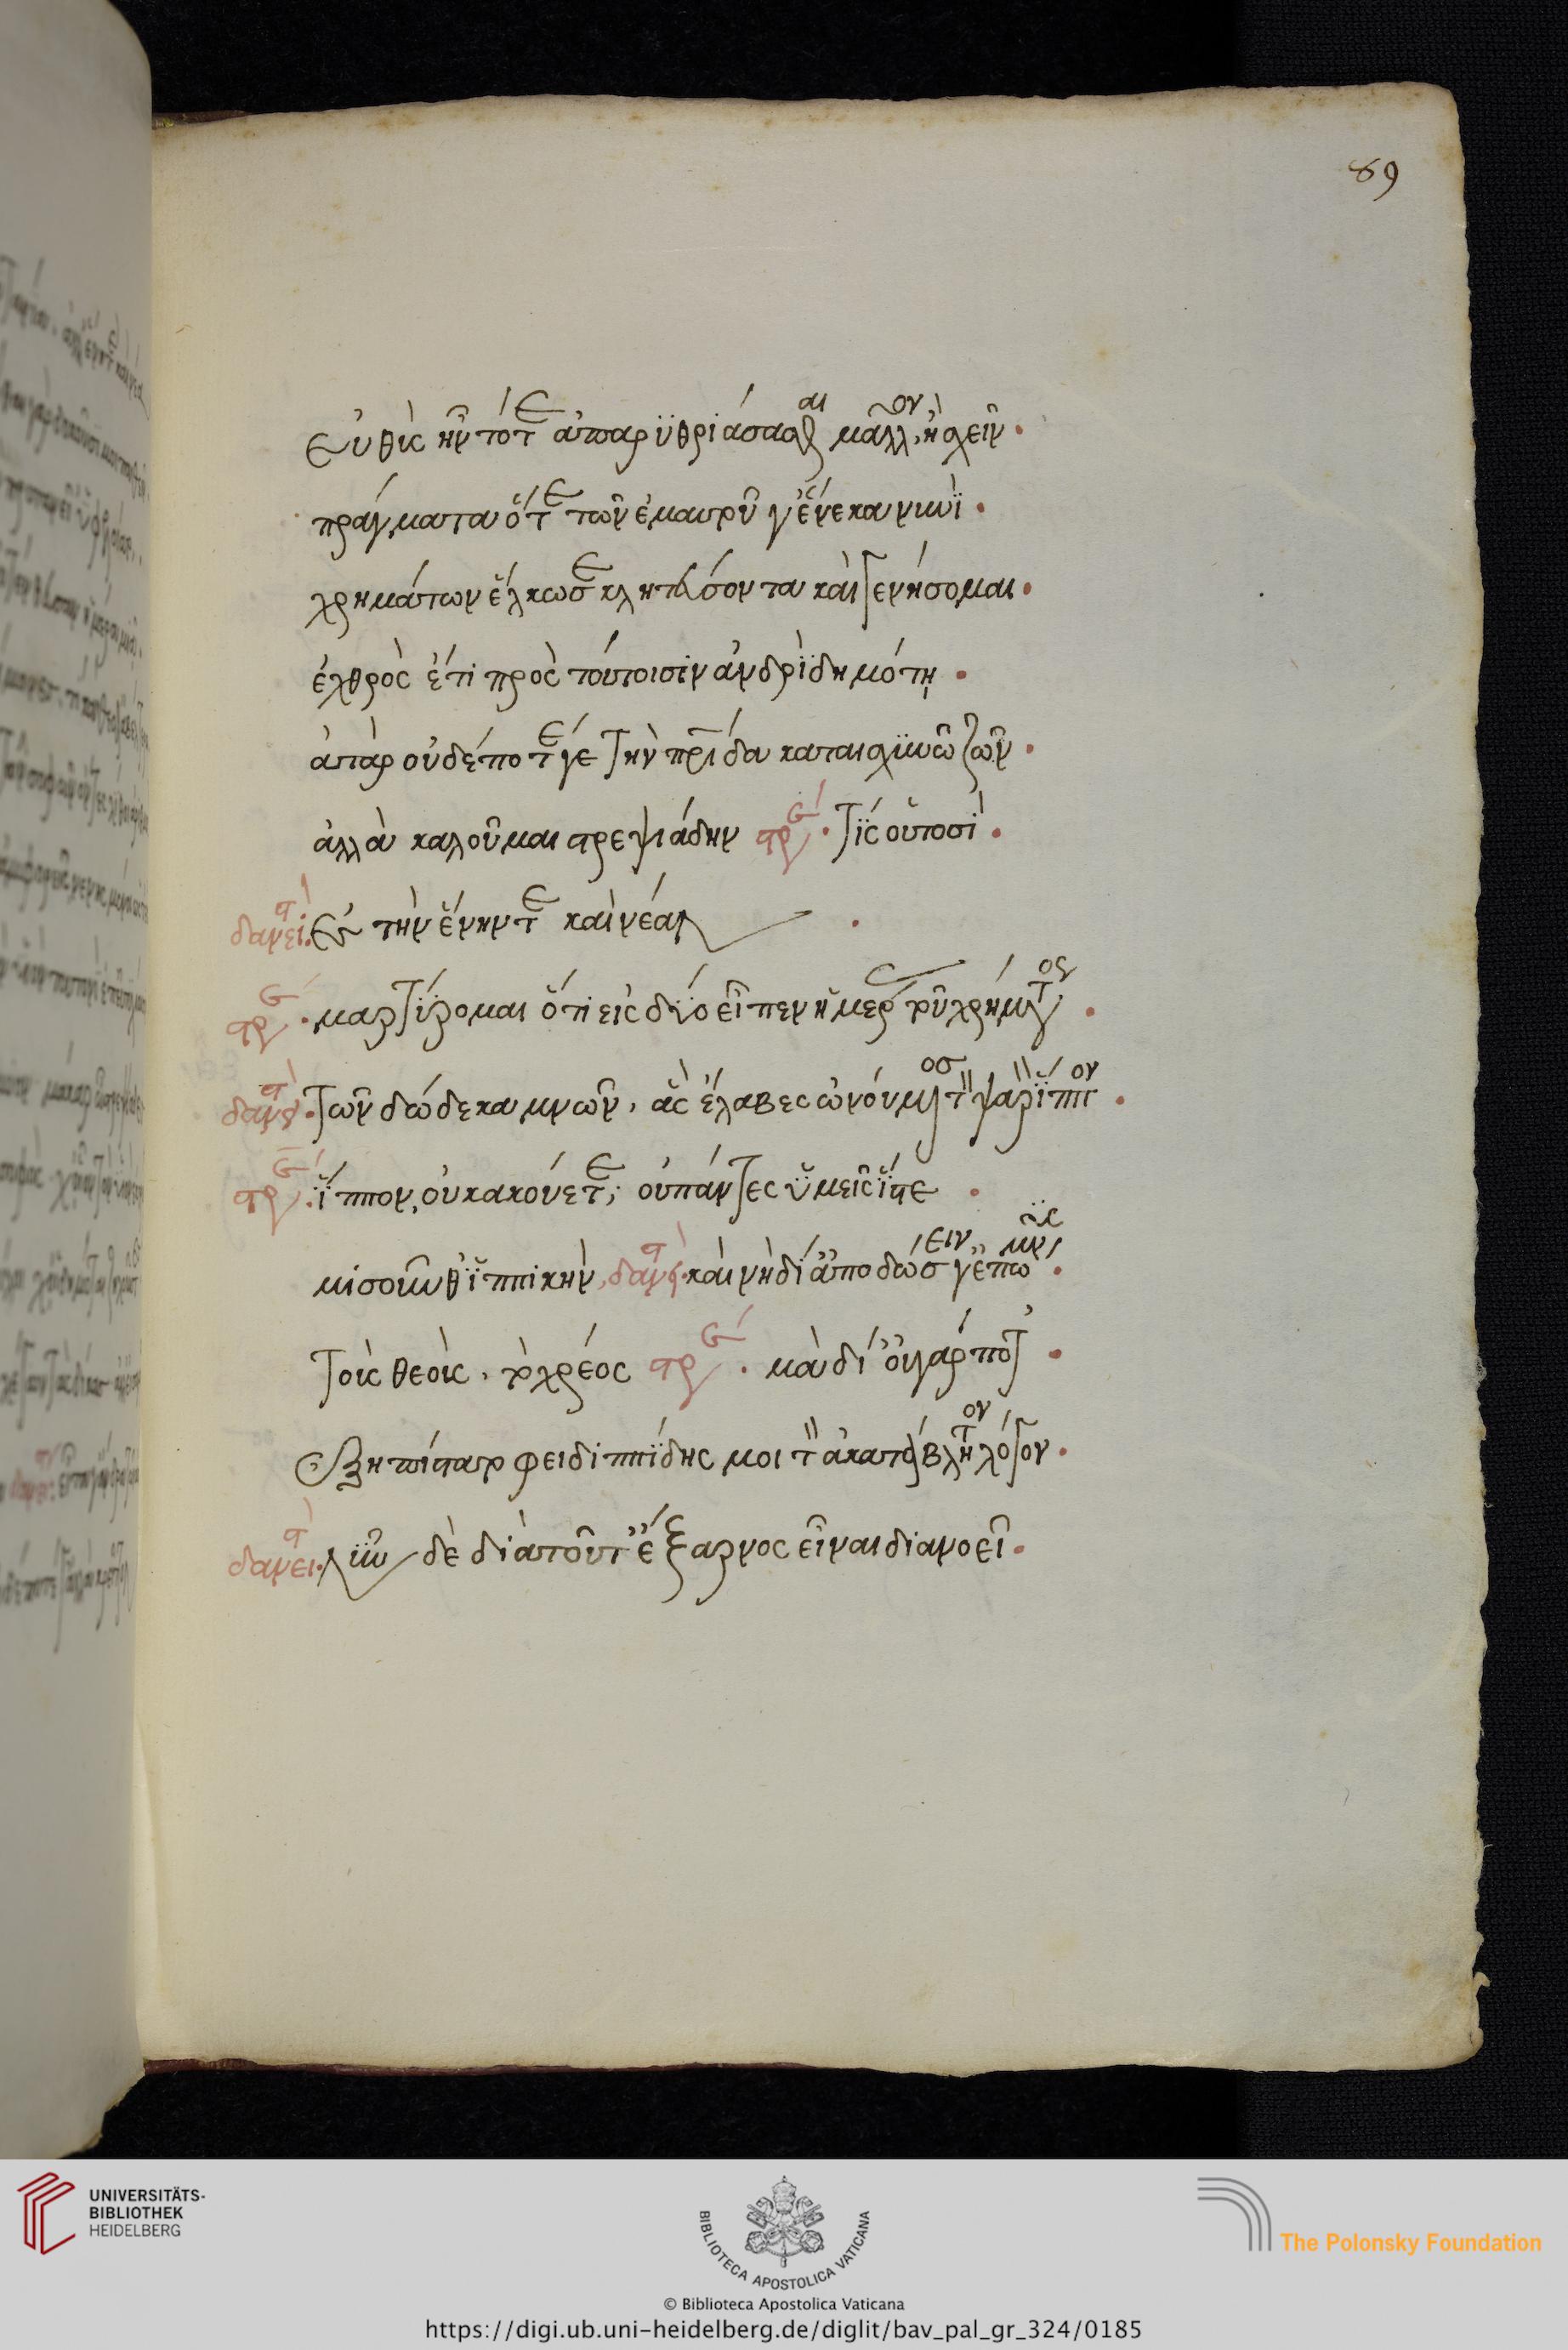 89
εὐθὺς ἦν τότε ἀπαρυθριάσαι μᾶλλον ἢ σχεῖν
πράγματα ὅτε τῶν ἐμαυτοῦ γ' ἕνεκα νυνὶ
χρημάτων ἕλκω σε κλητεύσοντα καὶ γενήσομαι
ἐχθρὸς ἔτι πρὸς τούτοισιν ἀνδρὶ δημότῃ
ἀτὰρ οὐδέποτέ γε τὴν πρίδα καταισχυνῶ ζῶν
ἀλλὰ καλοῦμαι στρεψιάδην στρε· τίς οὑτοσί
δανει· ἐς τὴν ἕνην τε καὶ νέαν
στρε· μαρτύρομαι ὅτι εἰς δύο εἶπεν ἡμέρας τοῦ χρήματος
δανει· τῶν δώδεκα μνῶν, ἃς ἔλαβες ὠνούμενος τὸν ψαρὸν ἵππον
στρε· ἵππον, οὐκ ἀκούετε; ὃν πάντες ὑμεῖς ἴστε
μισοῦνθ' ἱππικήν, δανει· καὶ νὴ δί' ἀποδώσειν γ' ἐπώμνυς
τοῖς θεοῖς, τὸ χρέος στρε· μὰ δί' οὐ γάρ πο τ'
ἐξηπίστατο φειδιππίδης μοι τὸν ἀκατάβλητον λόγον
δανει· νῦν δὲ διὰ τοῦτ' ἔξαρνος εἶναι διανοεῖ
UNIVERSITÄTS-
BIBLIOTHEK
HEIDELBERG
BIBLIOTECA APOSTOLICA VATICANA
The Polonsky Foundation
© Biblioteca Apostolica Vaticana
https://digi.ub.uni-heidelberg.de/diglit/bav_pal_gr_324/0185